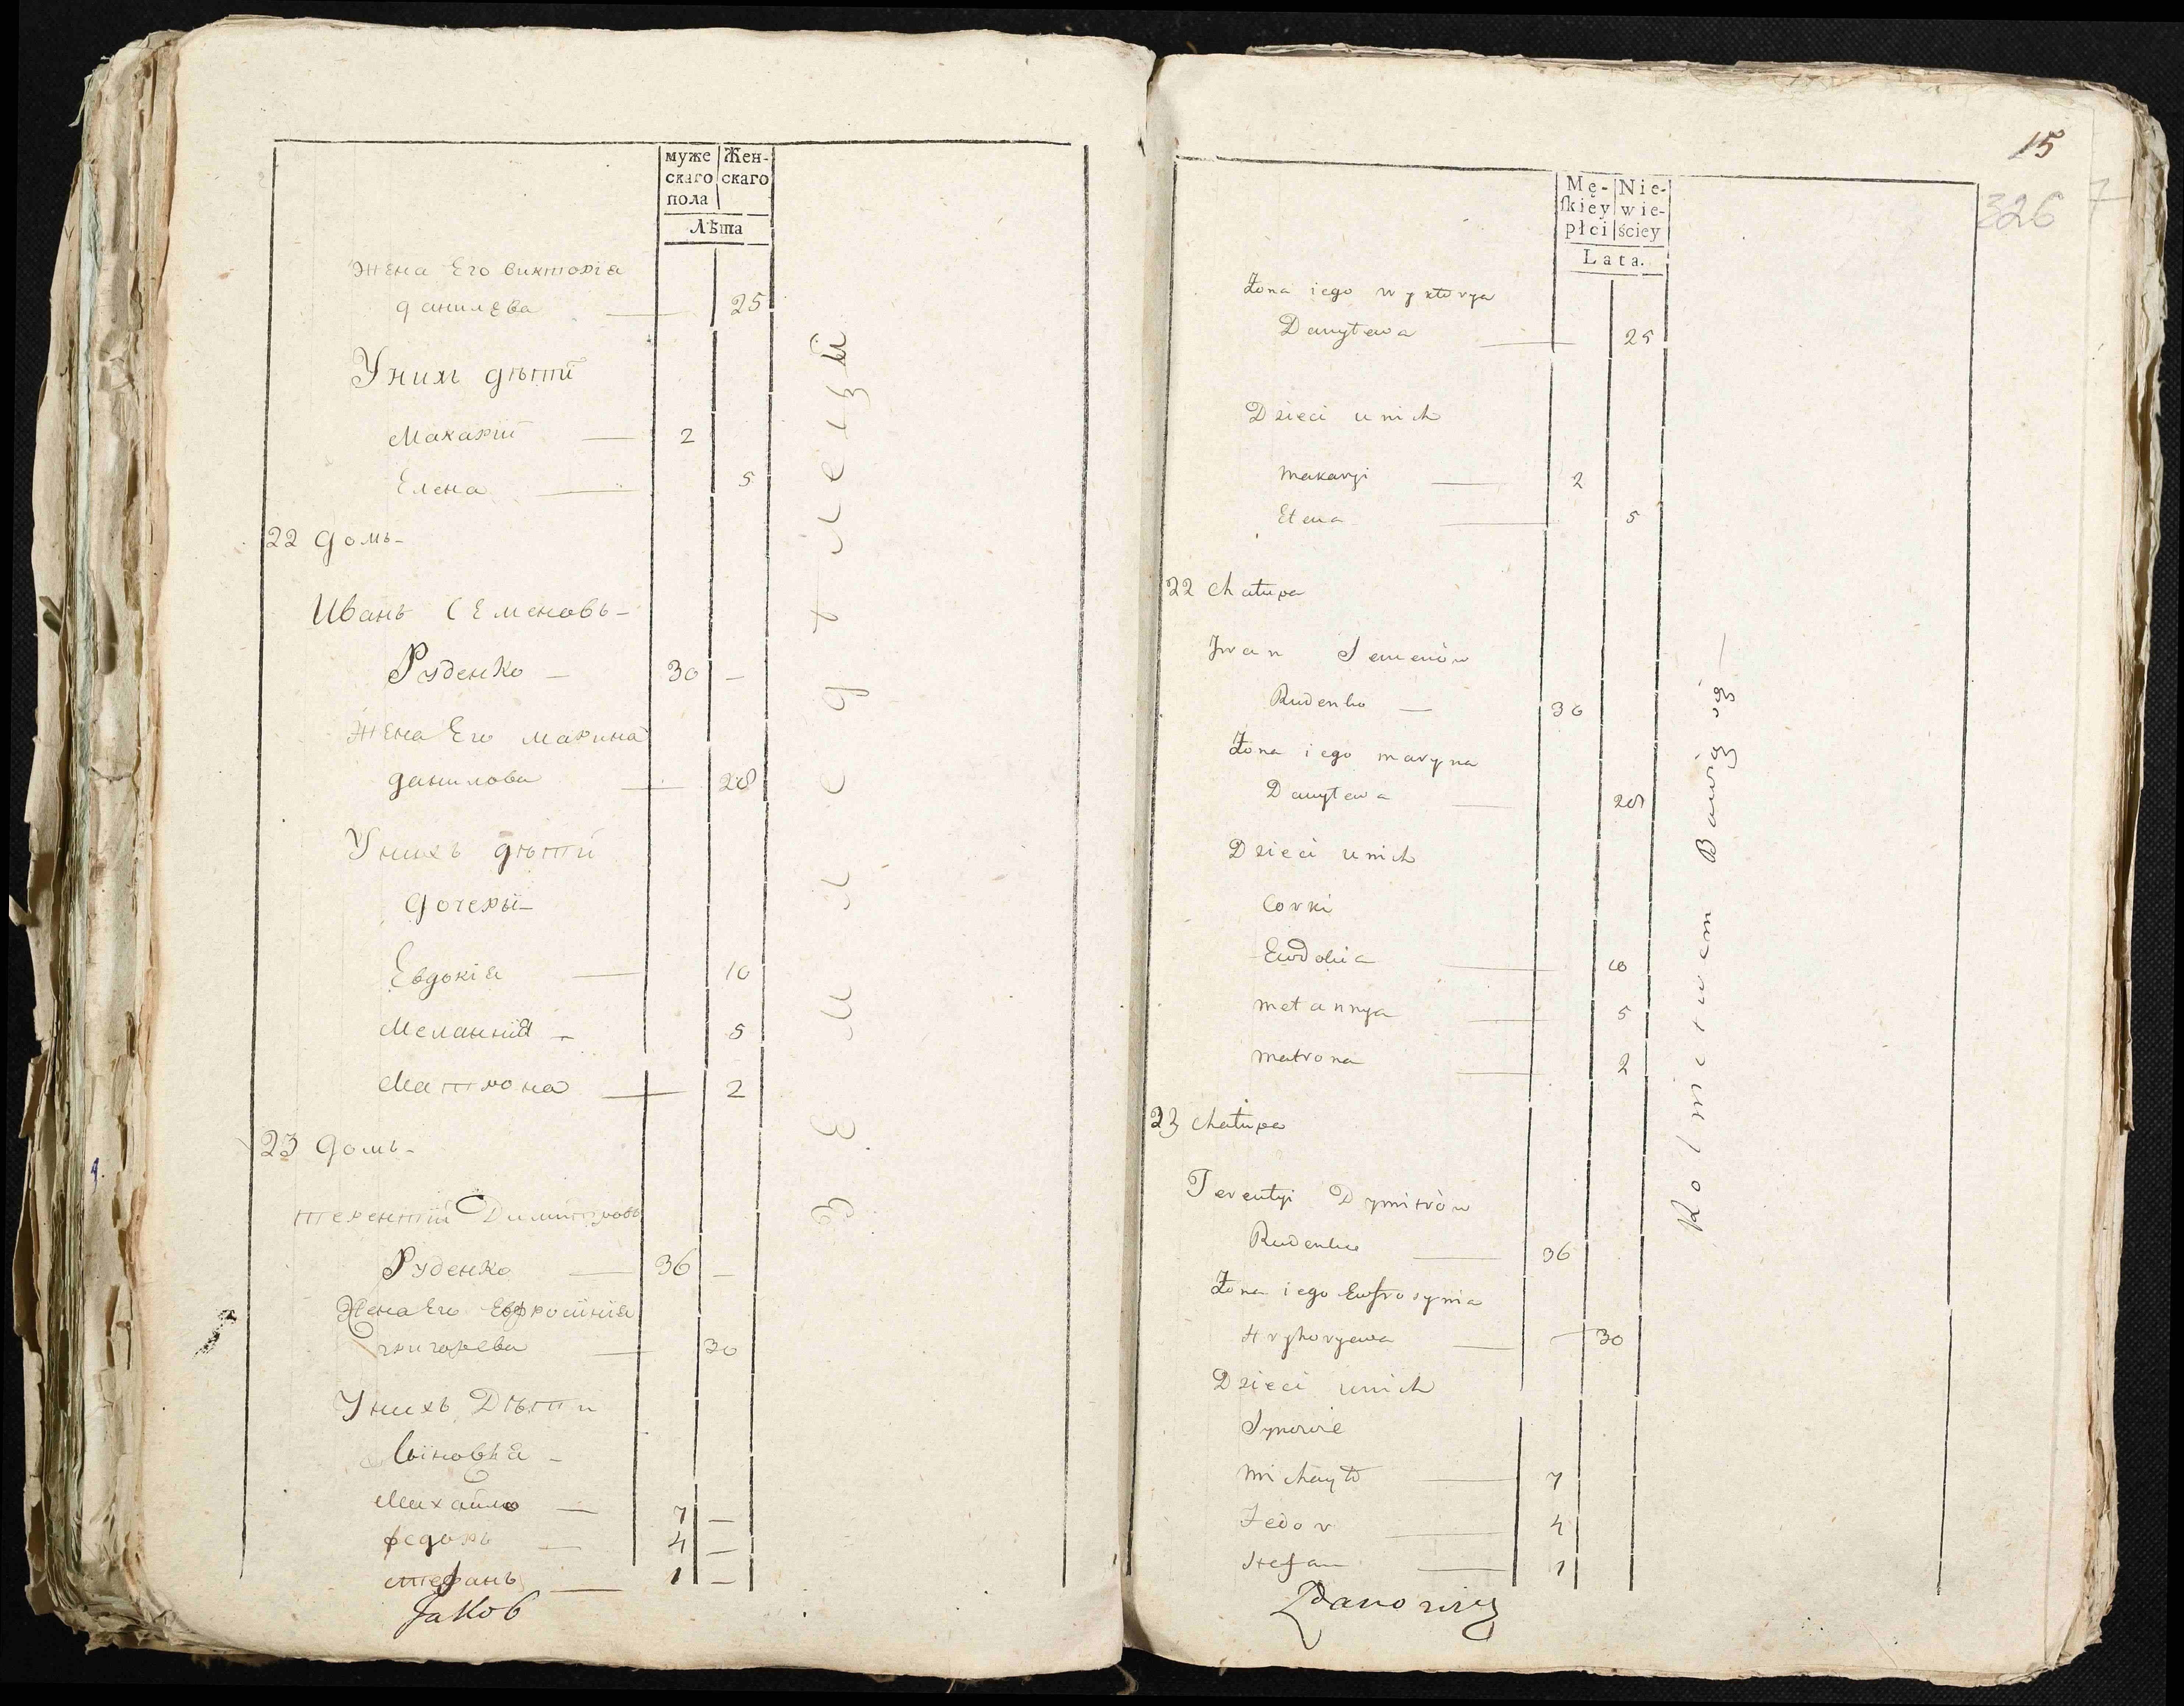 муже
скаго
пола
Жен-
скаго
Лѣта
Жена Его викторіа
данилева — 25
Уних дѣти
Макарий — 2
Елена — 5
22 домъ-
Иванъ Семеновъ-
Руденко — 30 —
Жена Его марина
данилова — 28
Унихъ дѣти
дочеры-
Евдокіа — 10
Меланниа — 5
Матрона — 2
23 домъ-
терентий Димитровъ
Руденко — 36 —
Жена Его Евфросиниа
григорева — 30
Унихъ Дѣти
Сыновья -
Михайло — 7 —
федоръ — 4 —
стефанъ — 1 —
Jakob
Землед
15
326
7
Mę-
skiey
płci
Nie-
wie-
ściey
Lata.
Żona iego wyktorya
Danyłewa — 25
Dzieci unich
makaryi — 2
Ełena — 5
22 chałupa
Jwan Semenów
Rudenko — 30
Żona iego maryna
Danyłewa — 28
Dzieci unich
Corki
Ewdokia — 10
mełannya — 5
matrona — 2
23 chałupa
Terentyi Dymitrów
Rudenko — 36
Żona iego Ewfrosynia
Hryhoryewa — 30
Dzieci unich
Synowie
michayło — 7
Fedor — 4
stefan — 1
Rolnictwem Bawią się —